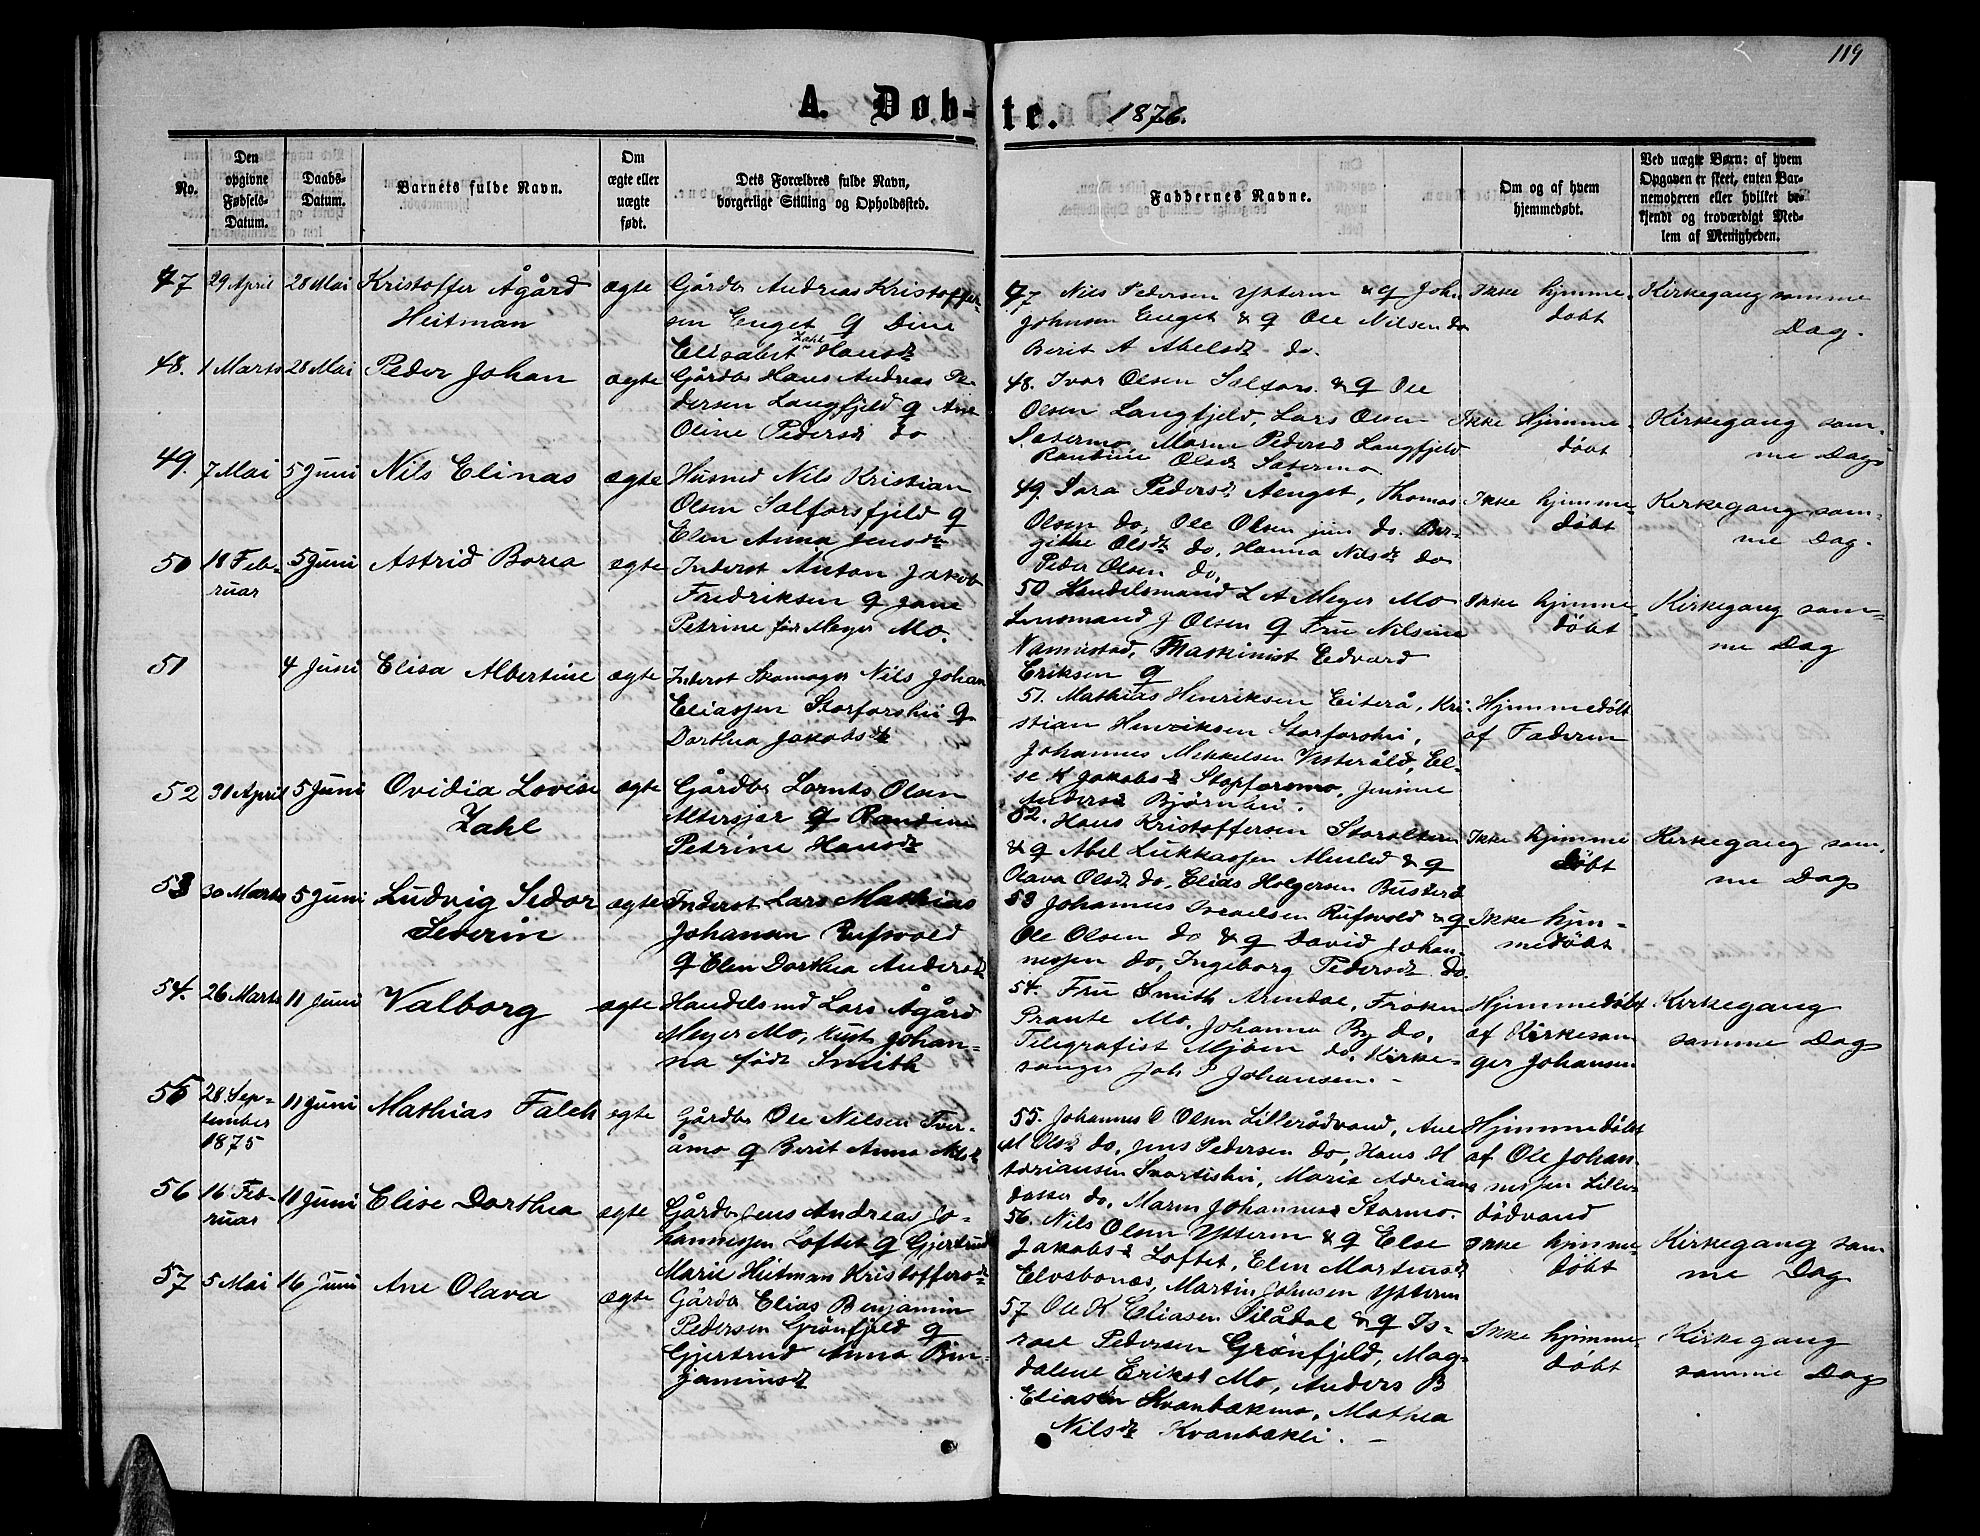 119
A. Døb-te. 1876.
No.
Den opgivne Fødsels-Datum.
Daabs-Datum.
Barnets fulde Navn.
Om ægte eller uægte født.
Dets Forældres fulde Navn, borgerlige Stilling og Opholdssted.
Faddernes Navne.
Om og af hvem hjemmedøbt.
Ved uægte Børn: af hvem Opgaven er skeet, enten Barnemoderen eller hvilket bekjendt og troværdigt Medlem af Menigheden.
47 29 April 28 Mai Kristoffer Ågård
Heitman
ægte
Gårdbr Andreas Kristoffer-
sen Enget & Dine
Elisabet Zahl Hansdr
47 Nils Pedersen Ytteren & & Joh.
Johnsen Enget & & Ole Nilsen do
Berit A Abelsdr do.
Ikke hjemme-
døbt
Kirkegang samme
Dag.
48. 1 Marts 28 Mai Peder Johan
ægte
Gårdbr Hans Andreas Pe-
dersen Langfjeld & Ane
Oline Pedersdr do
48. Ivar Olsen Selfors & & Ole
Olsen Langfjeld, Lars Olsen
Sætermo, Maren Pedersd Langfjeld
Rantine Olsdr Sætermo
Ikke Hjemme-
døbt
Kirkegang sam-
me Dag
49. 7 Mai 5 Juni Nils Elinas
ægte
Husmd Nils Kristian
Olsen Selforsfjeld &
Elen Anna Jensdr
49. Sara Pedersd Åenget, Thomas
Olsen do, Ole Olsen jun do. Ber-
gitte Olsdr do, Hanna Nilsdr do
Peder Olsen do.
Ikke hjemme-
døbt
Kirkegang sam-
me Dag.
50 18 Feb-
ruar
5 Juni Astrid Borea
ægte
Inderst Anton Jakob
Fredriksen & Jane
Petrine født Meyer Mo.
50 Handelsmand L A Meyer Mo
Lensmand J Olsen & Fru Nilsine
Maskinist Edvard
Eriksen &
Ikke hjemme-
døbt
Kirkegang sam-
me Dag
51 4 Juni Elisa Albertine
ægte
Inderst Skomager Nils Johan
Eliassen Storforshei &
Dorthea Jakobsdr
51. Mathias Henriksen Eiterå, Kri-
stian Henriksen Storforshei,
Johannes Mikkelsen Vesterålid, El-
se K Jakobsd Storforsmo, Jimme
Andersd Bjørnhei.
Hjemmedøbt
af Faderen
52 31 April 5 Juni Ovidia Lovise
Zahl
ægte
Gårdbr Lornts Olsen
Altersjar & Randine
Petrine Hansdr
52. Hans Kristoffersen Storalteren
& & Abel Lukkassen Almlid & &
Olava Olsdr do, Elias Holgersen Busterå
Ikke hjemme
døbt
Kirkegang sam-
me Dag
53 30 Marts 5 Juni Ludvig Sedor
Severin
ægte
Inderst Lars Mathias
Johansen Rufsvold
& Elen Dorthea Andersd
53 Johannes Israelsen Rufsvold & &
Ole Olsen do & & David Johan-
nessen do, Ingeborg Pedersdr do.
Ikke hjem-
medøbt
54. 26 Marts 11 Juni Valborg
ægte
Handelsmd Lars Ågård
Meyer Mo, Kust. Johan-
na født Smith
54. Fru Smith Arendal, Frøken
Prante Mo, Johanna By do,
Telegrafist Mjøen do, Kirke-
sanger Joh P Johansen.
Hjemmedøbt
af Kirkesan
ger Johansen
Kirkegang
samme Dag
55 28 Sep-
tember
1875
11 Juni Mathias Falch
ægte
Gårdbr Ole Nilsen Tver-
åmo & Berit Anna Nilsd
55. Johannes O Olsen Lillerødvand, Ane
M Olsd do, Jens Pedersen do, Hans H
Adriansen Svartishei, Marie Adrians
datter do, Maren Johannesd Stormo.
Hjemmedøbt
af Ole Johan
nessen Lille-
rødvand
56 16 Feb-
ruar
11 Juni Elise Dorthea
ægte
Gårdbr Jens Andreas Jo-
hannessen Loftet & Gjertrud
Marie Heitman Kristoffersdr
56. Nils Olsen Ytteren & & Else
Jakobsd Loftet, Elen Martinsd
Elvsbonæs, Martin Johnsen Ytteren
Ikke hjemme-
døbt
Kirkegang sam
me Dag
57 5 Mai 16 Juni Ane Olava
ægte
Gårdbr Elias Benjamin
Pedersen Grønfjeld &
Gjertrud Anna Ben-
jaminsdr
57 Ole K Eliasen Pilådal & & Is-
rael Pedersen Grønfjeld, Mag-
dalene Eriksd Mo, Anders B
Eliasen Kvanbækmo, Mathea
Nilsdr Kvanbækli.
Ikke hjemme-
døbt
Kirkegang
samme Dag